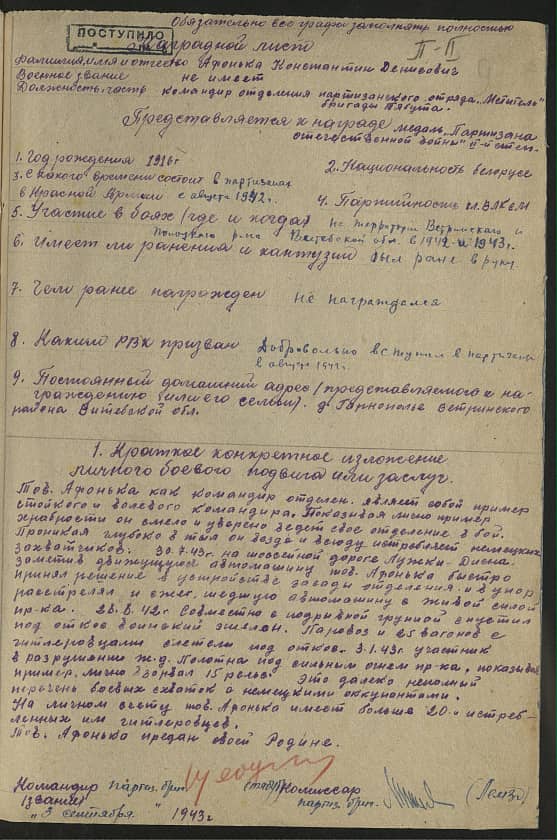 Обязательно все графы заполнять полностью
ПОСТУПИЛО
Наградной лист
II-II
Фамилия, имя и отчество Афонька Константин Денисович
Военное звание не имеет
Должность, часть командир отделения партизанского отряда "Мститель"
бригады Тябута.
Представляется к награде медаль "Партизана
отечественной войны" II-й степ.
1. Год рождения 1916г
2. Национальность белорус
3. С какого времени состоит в партизанах
в Красной Армии с августа 1942г.
4. Партийность чл. ВЛКСМ
5. Участие в боях (где и когда) на территории Ветринского и
Полоцкого р-на Витебской обл. в 1942 и 1943г.
6. Имеет ли ранения и контузии был ране в руку
7. Чем ранее награжден не награждался
8. Каким РВК призван Добровольно вступил в партизаны
в августе
9. Постоянный домашний адрес /представляемого к на-
граждению или его семьи/. д. Ветринского
района Витебской обл.
1. Краткое конкретное изложение
личного боевого подвига или заслуг.
Тов. Афонька как командир отделен. являет собой пример
стойкого и волевого командира. Показывая лично пример
храбрости он смело и уверено ведет свое отделение в бой.
Проникая глубоко в тыл он везде и всюду истребляет немецких
захватчиков. 30.7.43г. на шоссейной дороге Лужки-Дисна.
Заметив движущуюся автомашину тов. Афонька быстро
принял решение в устройстве засады отделения и в упор
расстрелял и сжег шедшую автомашину с живой силой
пр-ка. 28.8.42г. Совместно с подрывной группой спустил
под откос воинский эшелон. Паровоз и 25 вагонов с
гитлеровцами слетели под откос. 3.1.43г. участник
в разрушении ж.д. Полотна под сильным огнем пр-ка, показывая
пример, лично взорвал 15 рельс. Это далеко неполный
перечень боевых схваток с немецкими оккупантами.
На личном счету тов. Афонька имеет больше 20-и истреб-
ленных им гитлеровцев.
Тов. Афонька предан своей Родине.
Командир партиз. бриг. Комиссар
(звание) партиз. бриг.
"3 сентября" 1943г.